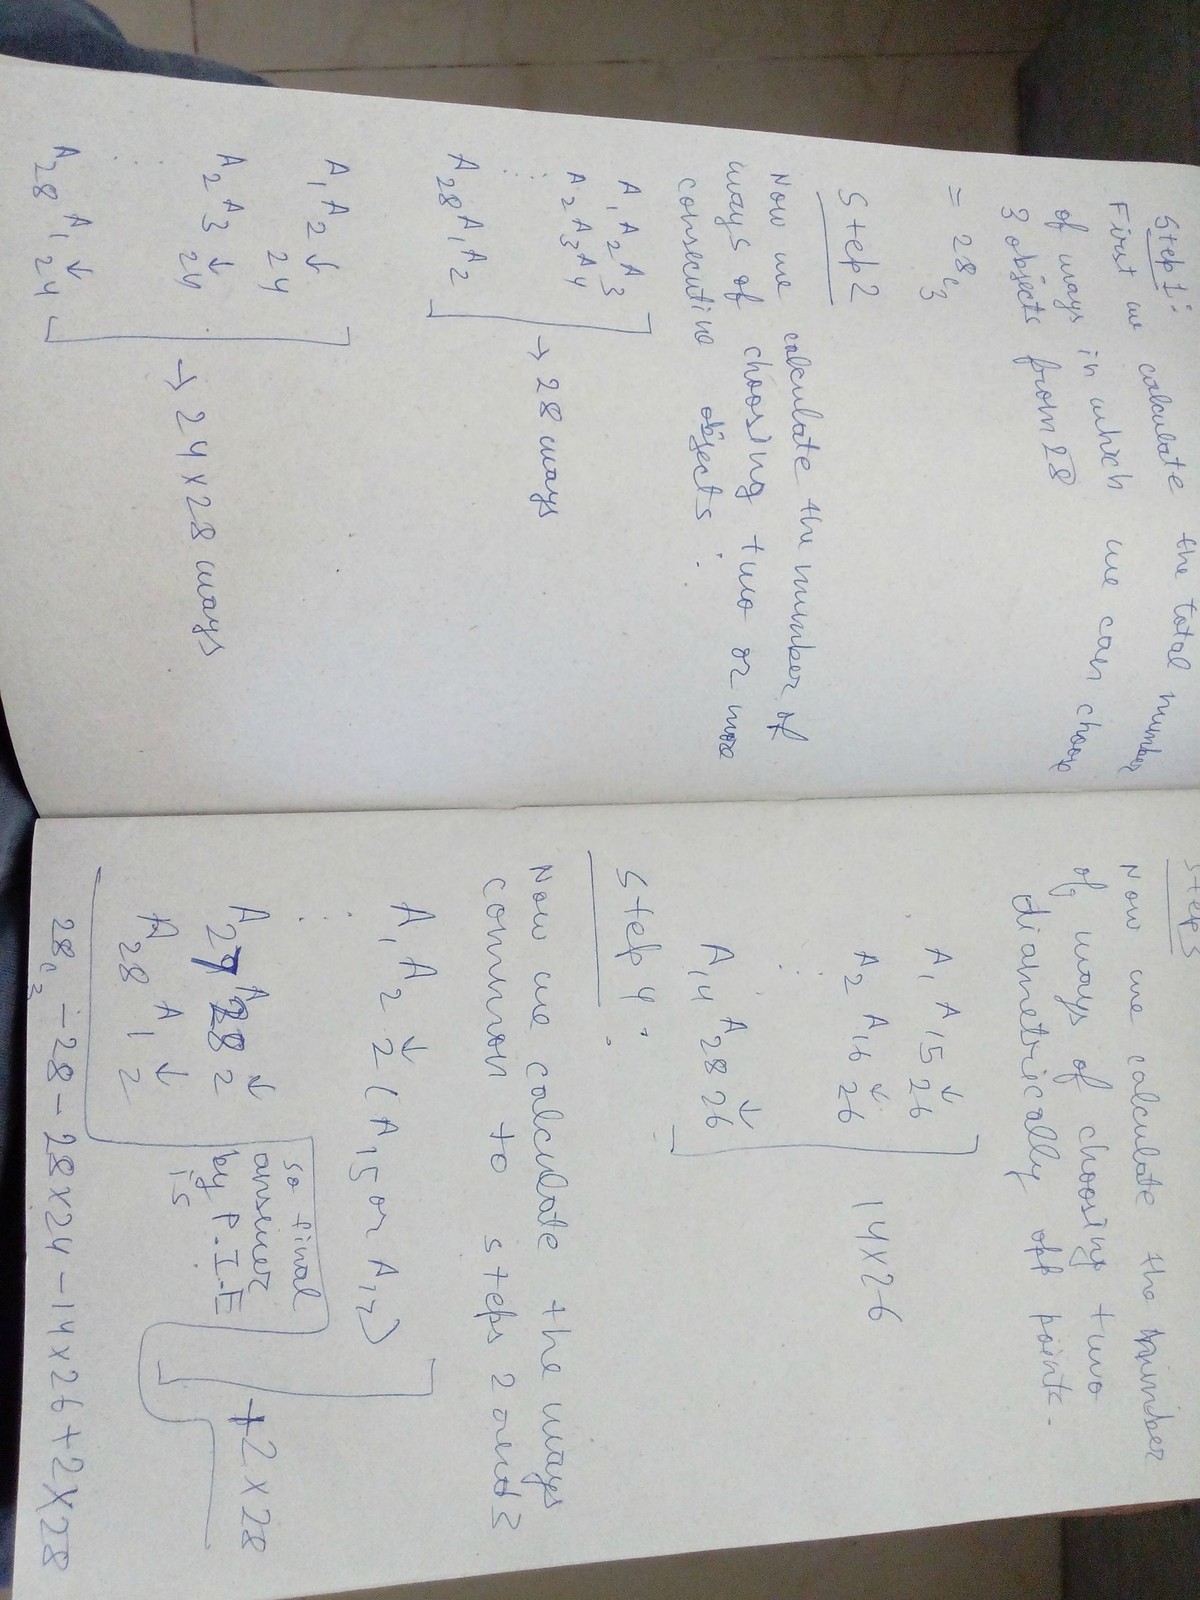 Step 1:
First we calculate the total number
of ways in which we can choose
3 objects from 28
= 28c3
Step 2
Now we calculate the number of
ways of choosing two or more
consecutive objects:
A1 A2 A3
A2 A3 A4
⋮
A28 A1 A2
→ 28 ways
A1 A2 ↓
24
A2 A3 ↓
24
⋮
A28 A1 ↓
24
→ 24 x 28 ways
Step 3
Now we calculate the number
of ways of choosing two
diametrically opp points.
A1 A15 ↓
26
A2 A16 ↓
26
⋮
A14 A28 ↓
26
14 x 26
Step 4:
Now we calculate the ways
common to steps 2 and 3
A1 A2 ↓
2 (A15 or A17)
⋮
A27 A28 ↓
2
A28 A1 ↓
2
+2 x 28
so final
answer
by P.I-E
is
28c3 - 28 - 28 x 24 - 14 x 26 + 2 x 28